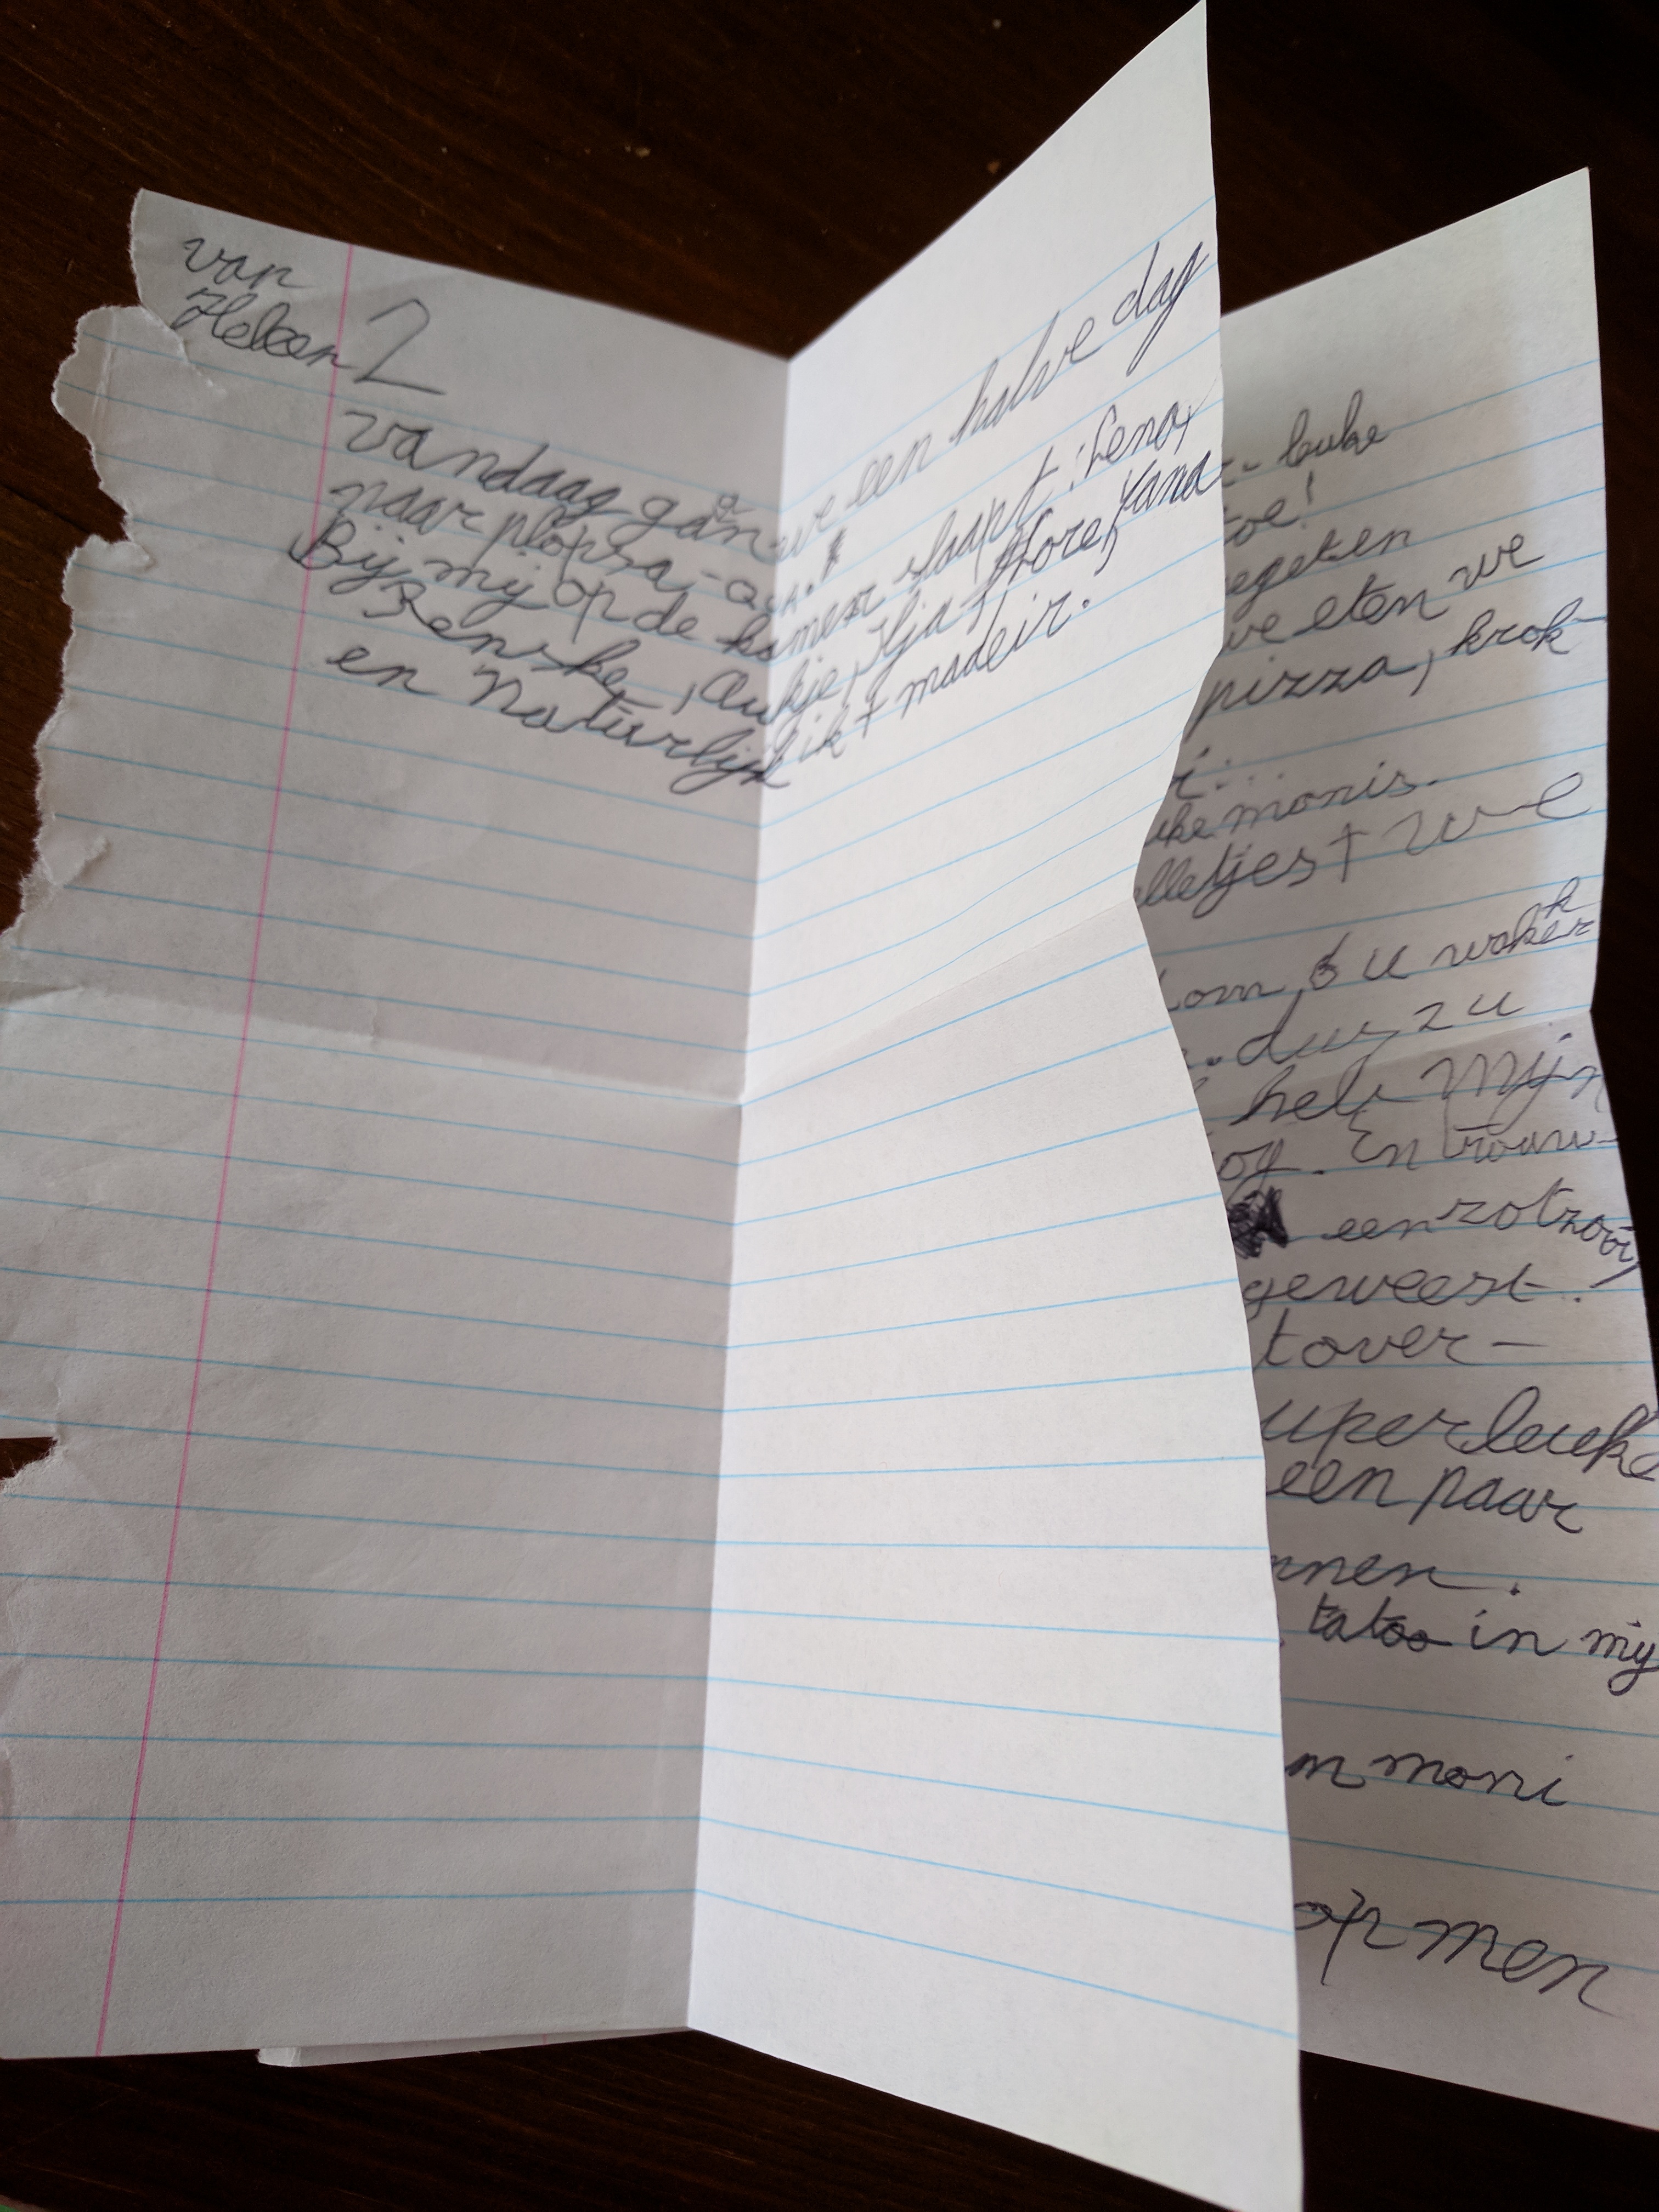 van
Heleen 2
vandaag gaan we een halve dag
naar plopsa-qua!
Bij mij op de kamer slaapt: Lena,
Renske, Aukje, Ilja + Flore, Yana
en Natuurlijk ik + madeir.
leuke
toe!
egeten
we eten we
pizza, krok-
monis.
lletjes + we
om 6 u wakker
dus zu
heb mijn
og. En trouw-
een zotzooi,
geweest.
tover-
uper leuke
een paar
nnen.
tatoo in mij
m moni
op men